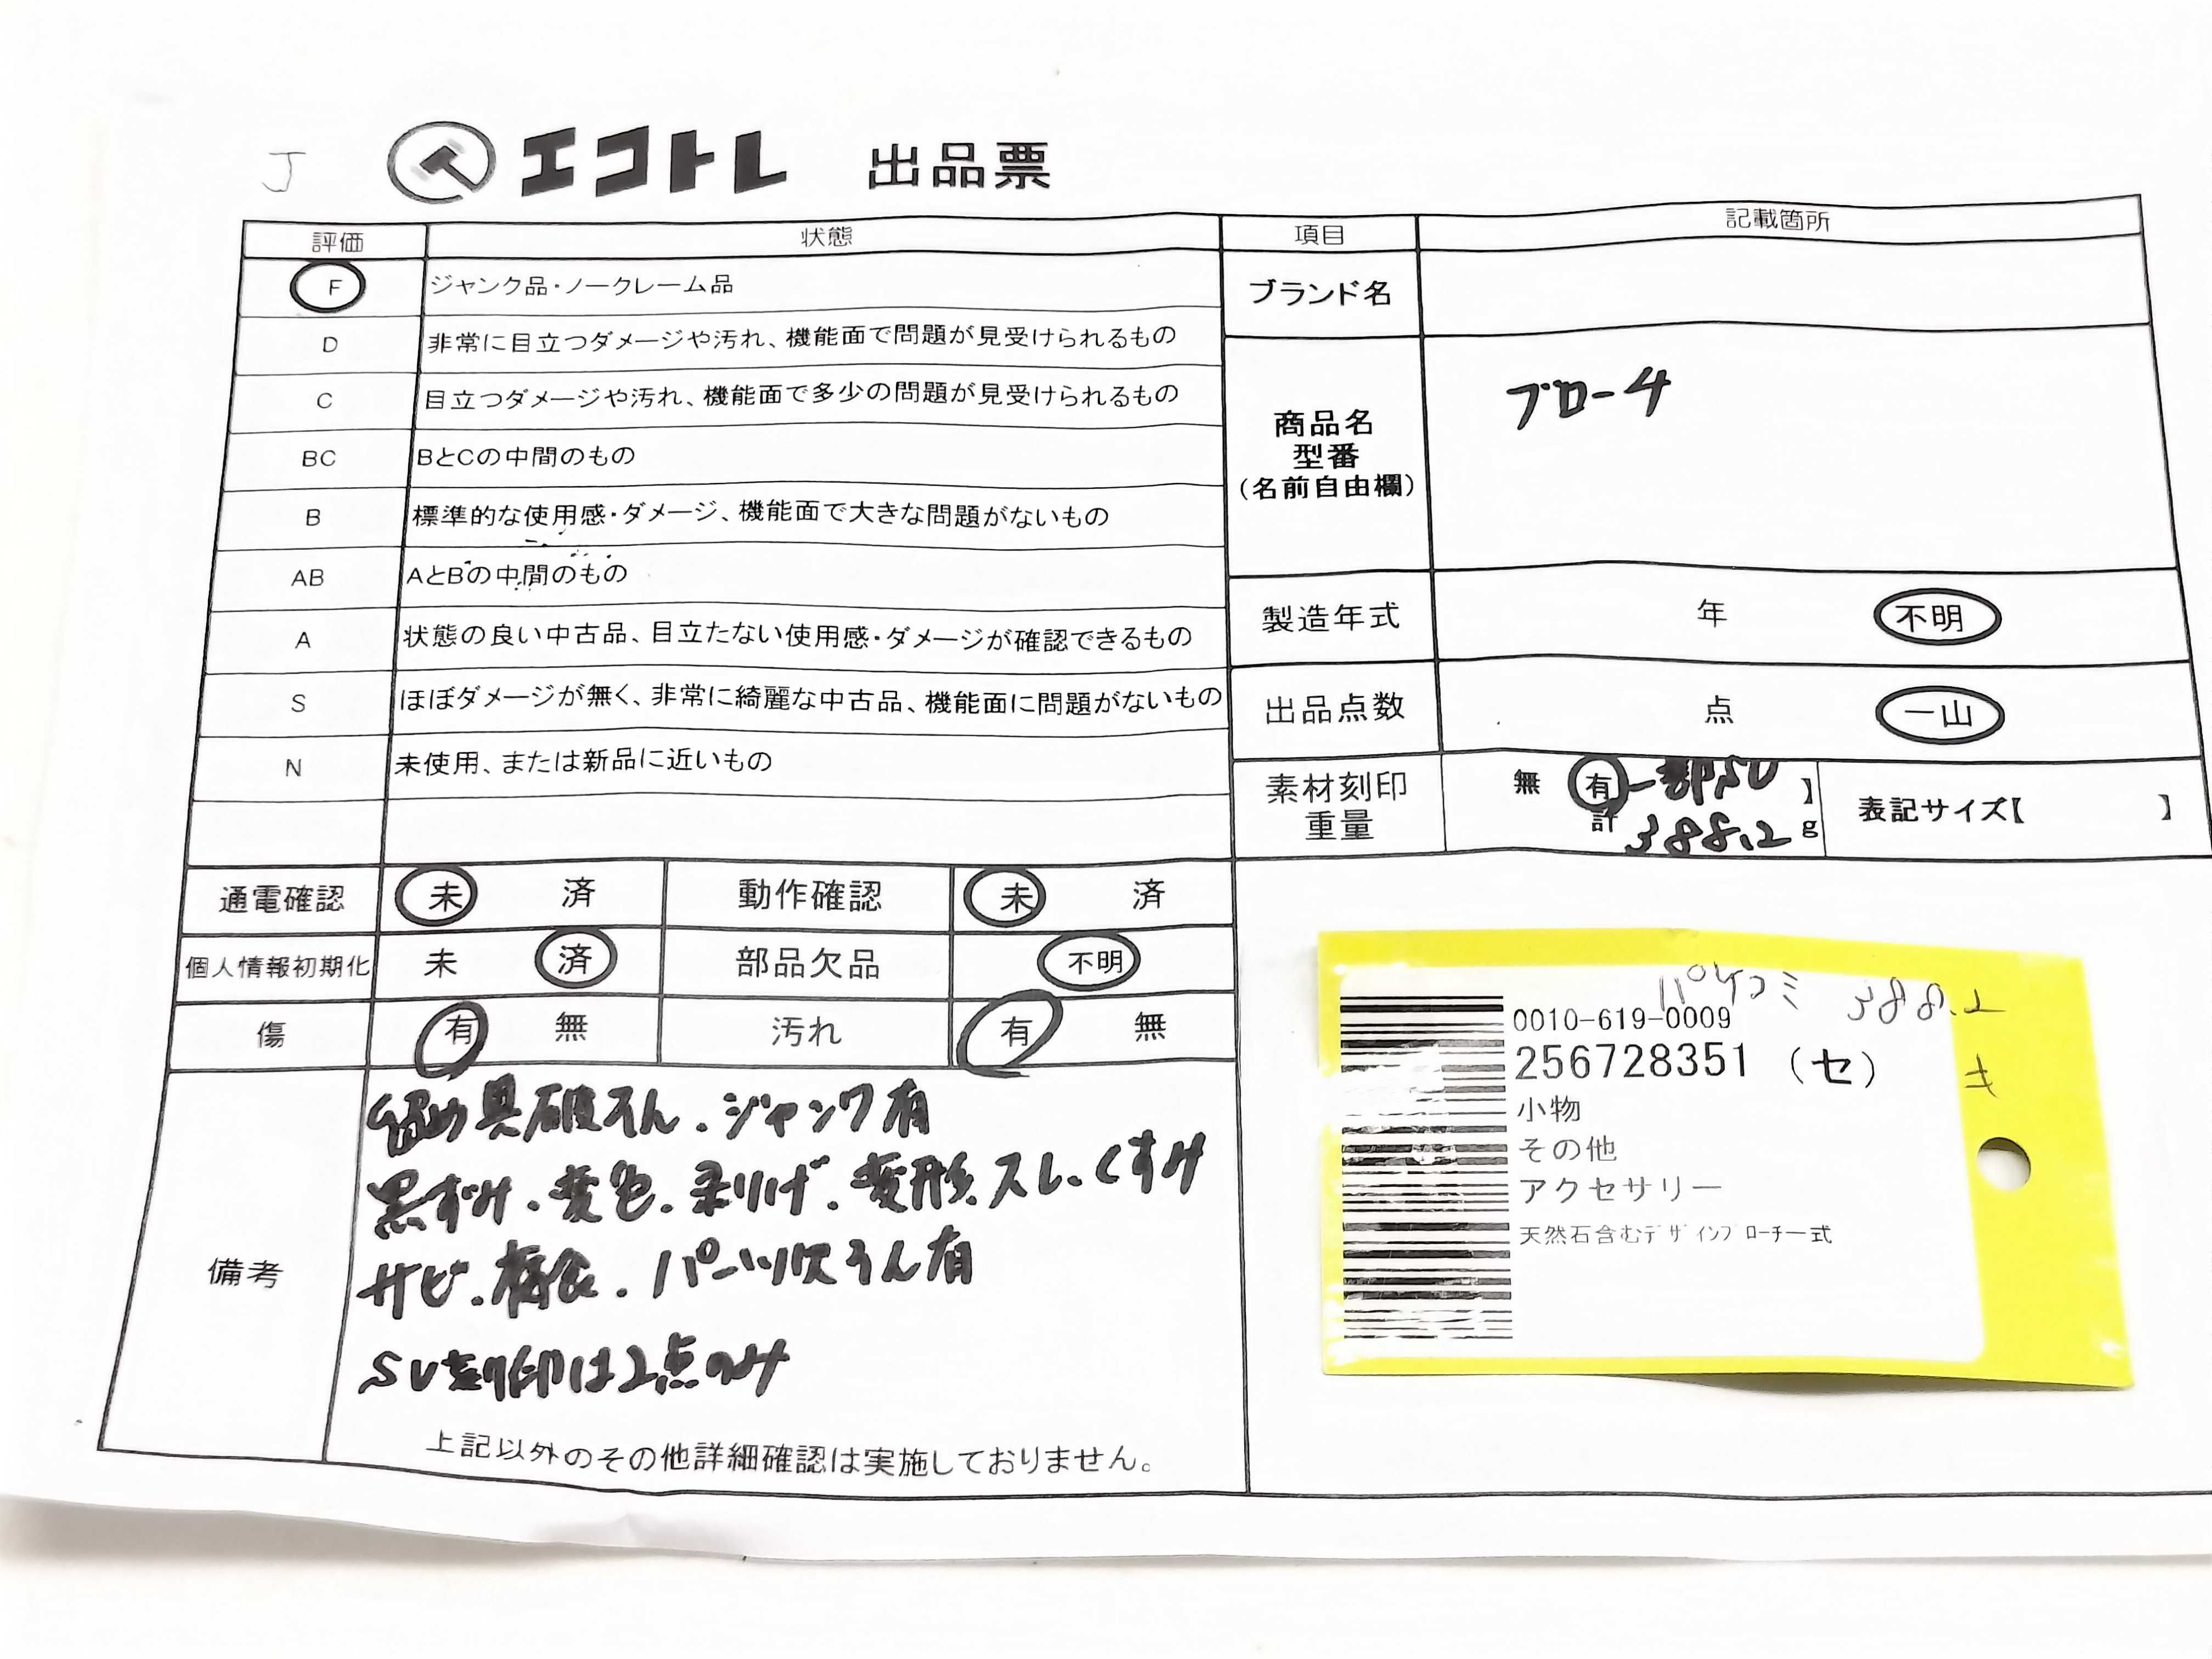 J
エコトレ 出品票
評価 状態
F ジャンク品・ノークレーム品
D 非常に目立つダメージや汚れ、機能面で問題が見受けられるもの
C 目立つダメージや汚れ、機能面で多少の問題が見受けられるもの
BC BとCの中間のもの
B 標準的な使用感・ダメージ、機能面で大きな問題がないもの
AB AとBの中間のもの
A 状態の良い中古品、目立たない使用感・ダメージが確認できるもの
S ほぼダメージが無く、非常に綺麗な中古品、機能面に問題がないもの
N 未使用、または新品に近いもの
通電確認 未 済 動作確認 未 済
個人情報初期化 未 済 部品欠品 不明
傷 有 無 汚れ 有 無
備考
留め具破そん.ジャンク有
黒ずみ.変色.剥げ.変形.スレ.くすみ
サビ.腐食.パーツ欠そん有
SV刻印は2点のみ
上記以外のその他詳細確認は実施しておりません。
項目 記載箇所
ブランド名
商品名
型番
(名前自由欄)
ブローチ
製造年式 年 不明
出品点数 点 一山
素材刻印
重量
無 有 一部SV 】
計 388.2 g
表記サイズ【 】
パケコミ 388.2
0010-619-0009
256728351 (セ) キ
小物
その他
アクセサリー
天然石含むデザインブローチ一式